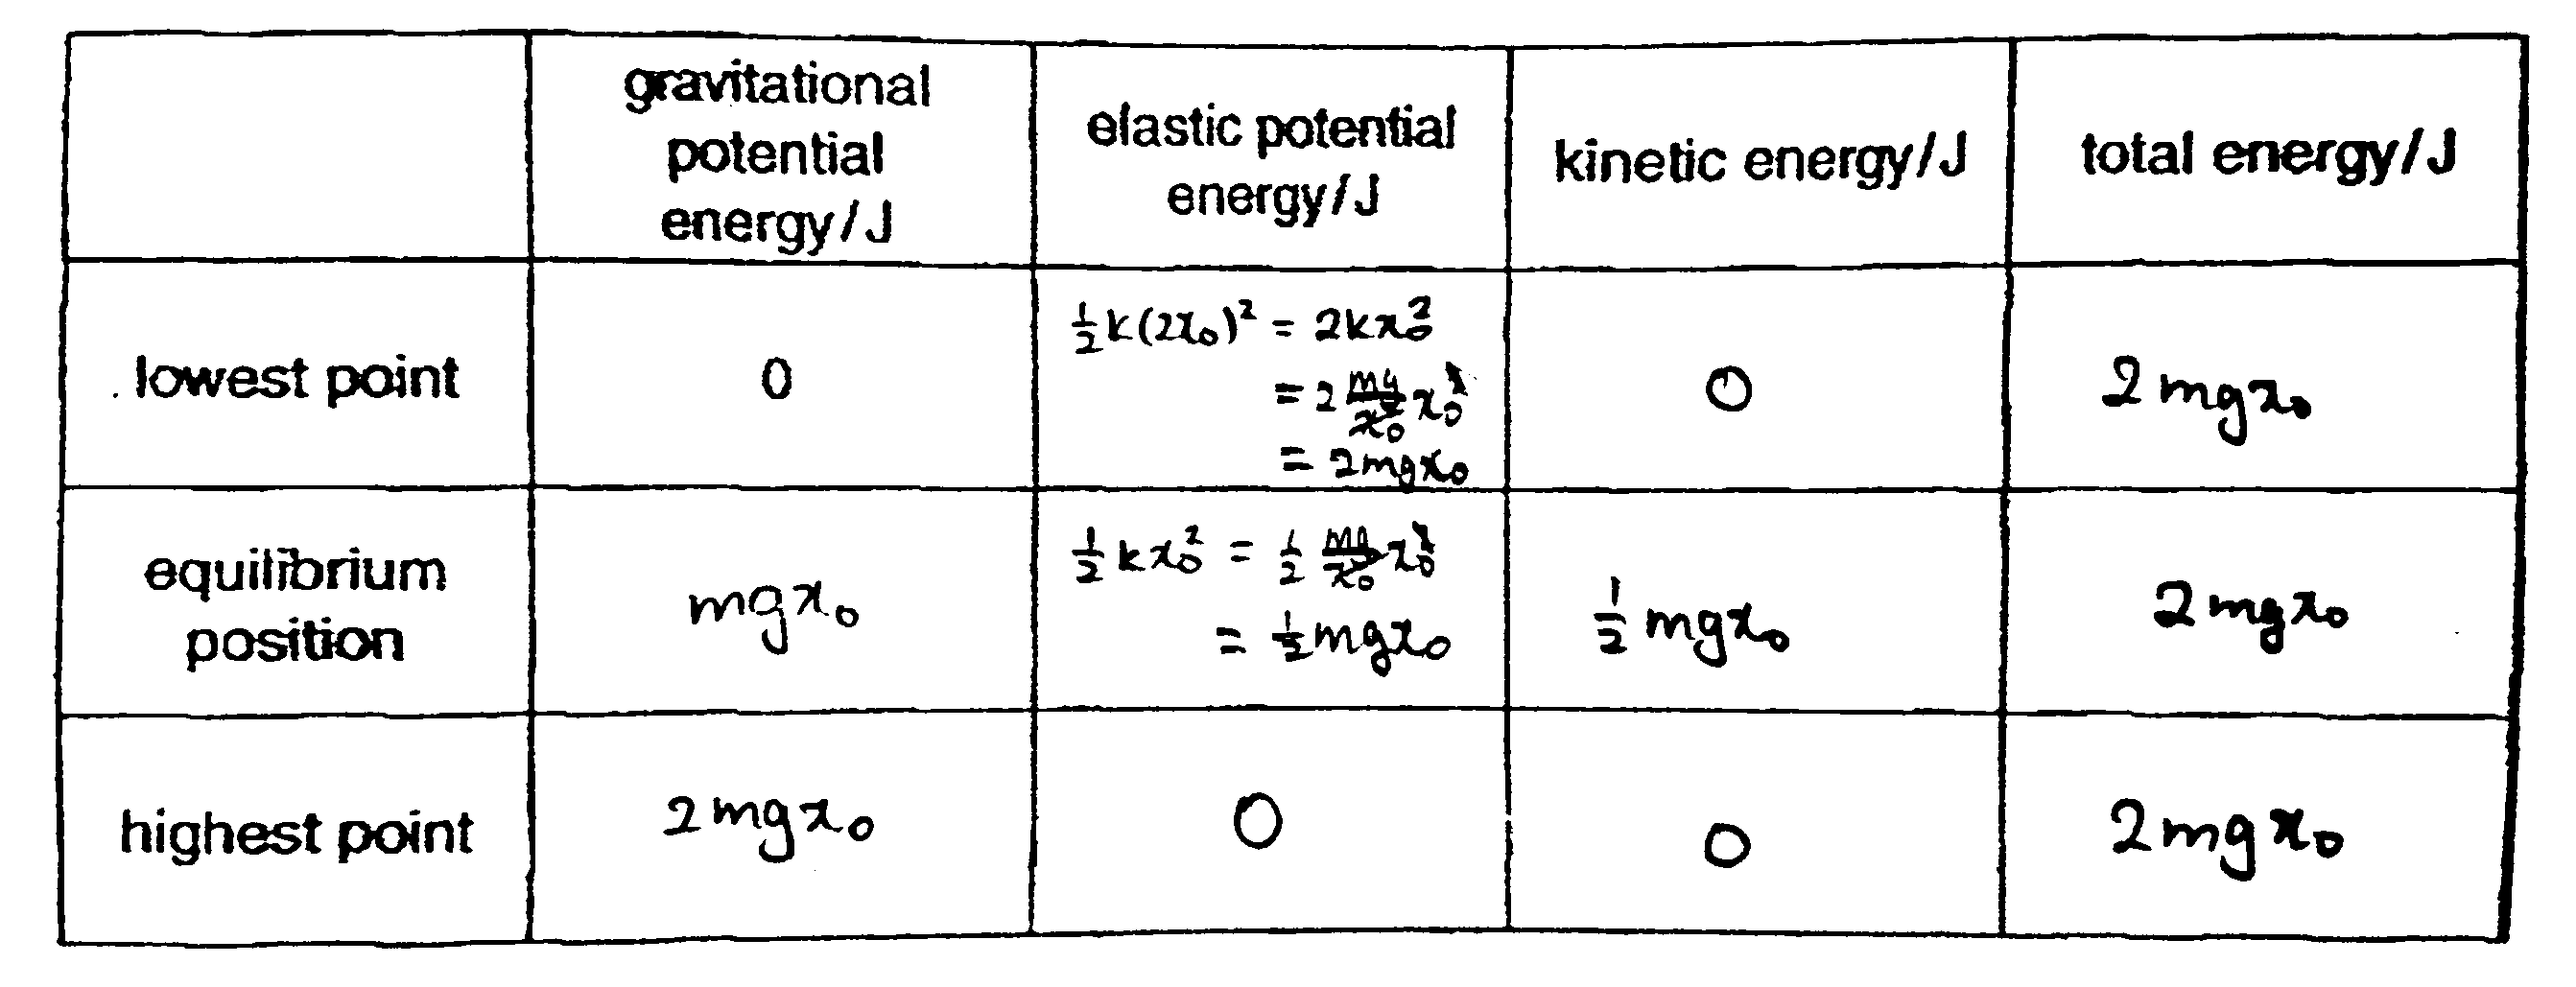 gravitational
potential
energy/J
elastic potential
energy/J
kinetic energy/J
total energy/J
lowest point
0
½k(2x₀)² = 2kx₀²
= 2 mg/x₀ x₀²
= 2mgx₀
0
2mgx₀
equilibrium
position
mgx₀
½kx₀² = ½ mg/x₀ x₀²
= ½mgx₀
½mgx₀
2mgx₀
highest point
2mgx₀
0
0
2mgx₀